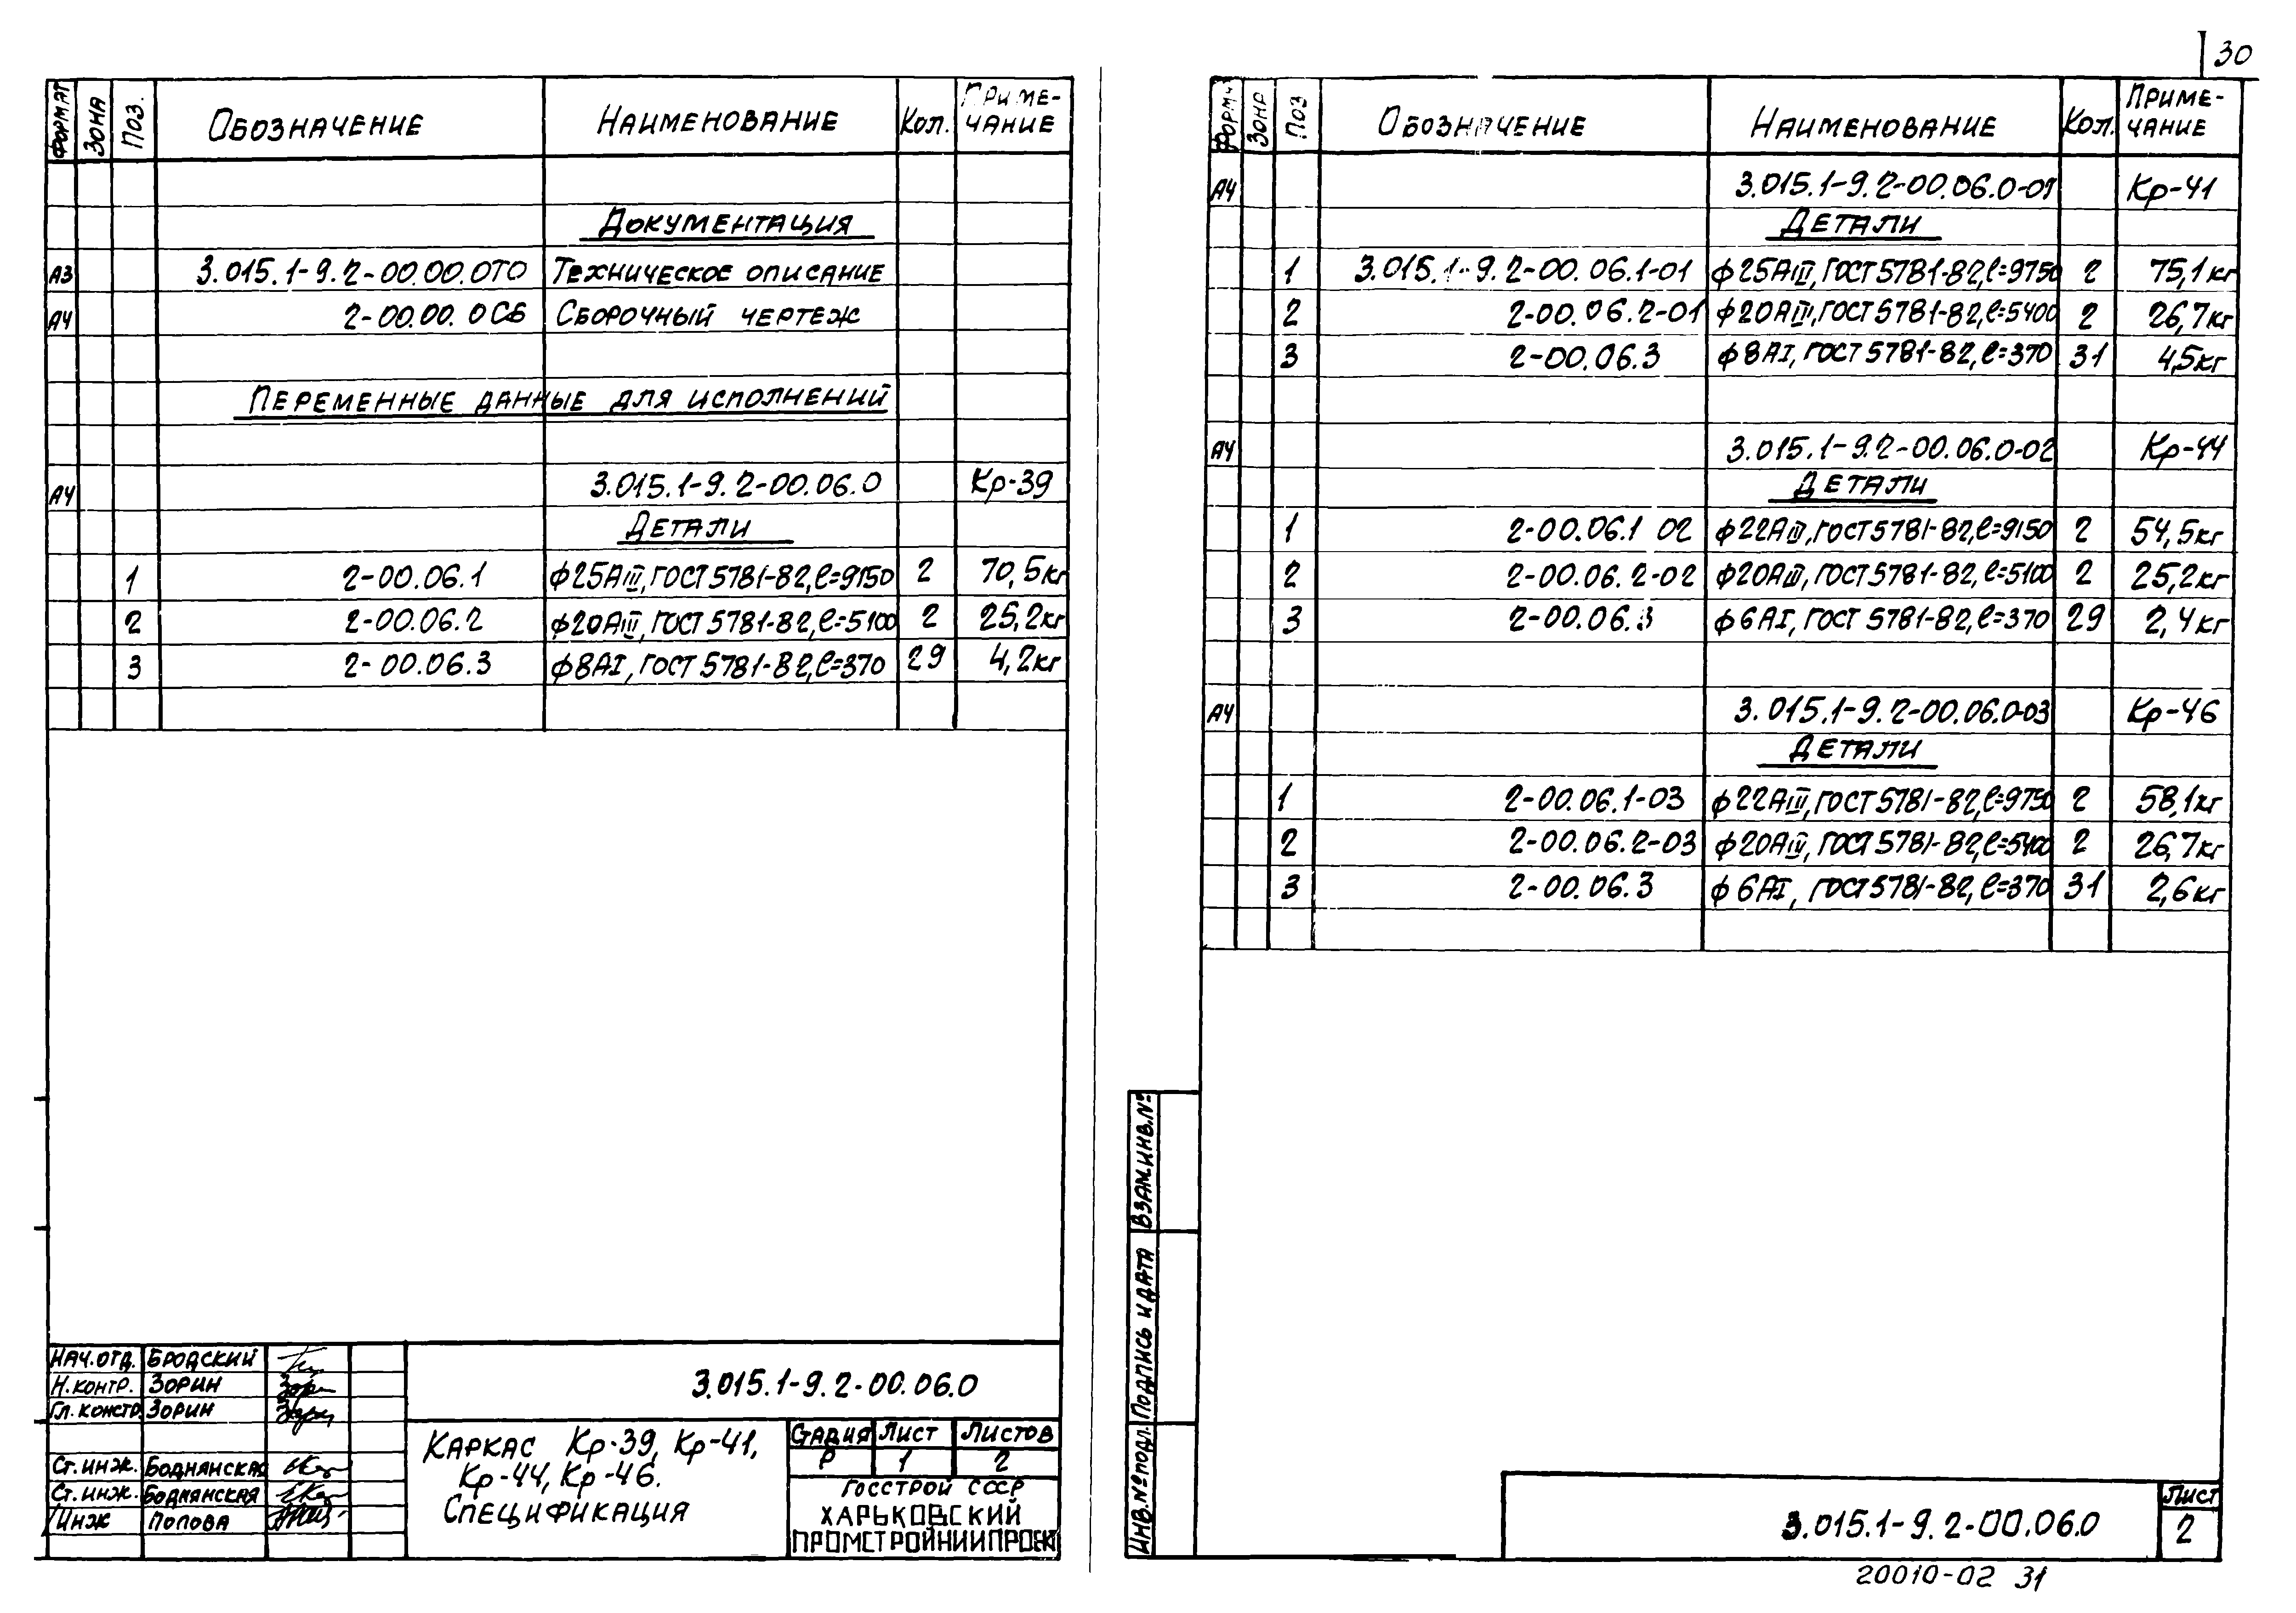 30
ФОРМАТ ЗОНА ПОЗ. ОБОЗНАЧЕНИЕ НАИМЕНОВАНИЕ КОЛ. ПРИМЕ-ЧАНИЕ
ДОКУМЕНТАЦИЯ
А3 3.015.1-9.2-00.00.0ТО ТЕХНИЧЕСКОЕ ОПИСАНИЕ
А4 2-00.00.0СБ СБОРОЧНЫЙ ЧЕРТЕЖ
ПЕРЕМЕННЫЕ ДАННЫЕ ДЛЯ ИСПОЛНЕНИЙ
А4 3.015.1-9.2-00.06.0 Кр-39
ДЕТАЛИ
1 2-00.06.1 ф25АIII, ГОСТ 5781-82, ℓ=9150 2 70,5кг
2 2-00.06.2 ф20АIII, ГОСТ 5781-82, ℓ=5100 2 25,2кг
3 2-00.06.3 ф8АI, ГОСТ 5781-82, ℓ=370 29 4,2кг
НАЧ.ОТД. БРОДСКИЙ
Н.КОНТР. ЗОРИН
ГЛ.КОНСТР. ЗОРИН
СТ.ИНЖ. БОДНЯНСКАЯ
СТ.ИНЖ. БОДНЯНСКАЯ
ИНЖ ПОПОВА
3.015.1-9.2-00.06.0
КАРКАС Кр-39, Кр-41,
Кр-44, Кр-46.
СПЕЦИФИКАЦИЯ
СТАДИЯ ЛИСТ ЛИСТОВ
Р 1 2
ГОССТРОЙ СССР
ХАРЬКОВСКИЙ
ПРОМСТРОЙНИИПРОЕКТ
ФОРМАТ ЗОНА ПОЗ ОБОЗНАЧЕНИЕ НАИМЕНОВАНИЕ КОЛ. ПРИМЕ-ЧАНИЕ
А4 3.015.1-9.2-00.06.0-01 Кр-41
ДЕТАЛИ
1 3.015.1-9.2-00.06.1-01 ф25АIII, ГОСТ 5781-82, ℓ=9750 2 75,1кг
2 2-00.06.2-01 ф20АIII, ГОСТ 5781-82, ℓ=5400 2 26,7кг
3 2-00.06.3 ф8АI, ГОСТ 5781-82, ℓ=370 31 4,5кг
А4 3.015.1-9.2-00.06.0-02 Кр-44
ДЕТАЛИ
1 2-00.06.1 02 ф22АIII, ГОСТ 5781-82, ℓ=9150 2 54,5кг
2 2-00.06.2-02 ф20АIII, ГОСТ 5781-82, ℓ=5100 2 25,2кг
3 2-00.06.3 ф6АI, ГОСТ 5781-82, ℓ=370 29 2,4кг
А4 3.015.1-9.2-00.06.0-03 Кр-46
ДЕТАЛИ
1 2-00.06.1-03 ф22АIII, ГОСТ 5781-82, ℓ=9750 2 58,1кг
2 2-00.06.2-03 ф20АIII, ГОСТ 5781-82, ℓ=5400 2 26,7кг
3 2-00.06.3 ф6АI, ГОСТ 5781-82, ℓ=370 31 2,6кг
ВЗАМ.ИНВ.№
ПОДПИСЬ И ДАТА
ИНВ.№ ПОДЛ.
3.015.1-9.2-00.06.0
ЛИСТ
2
20010-02 31